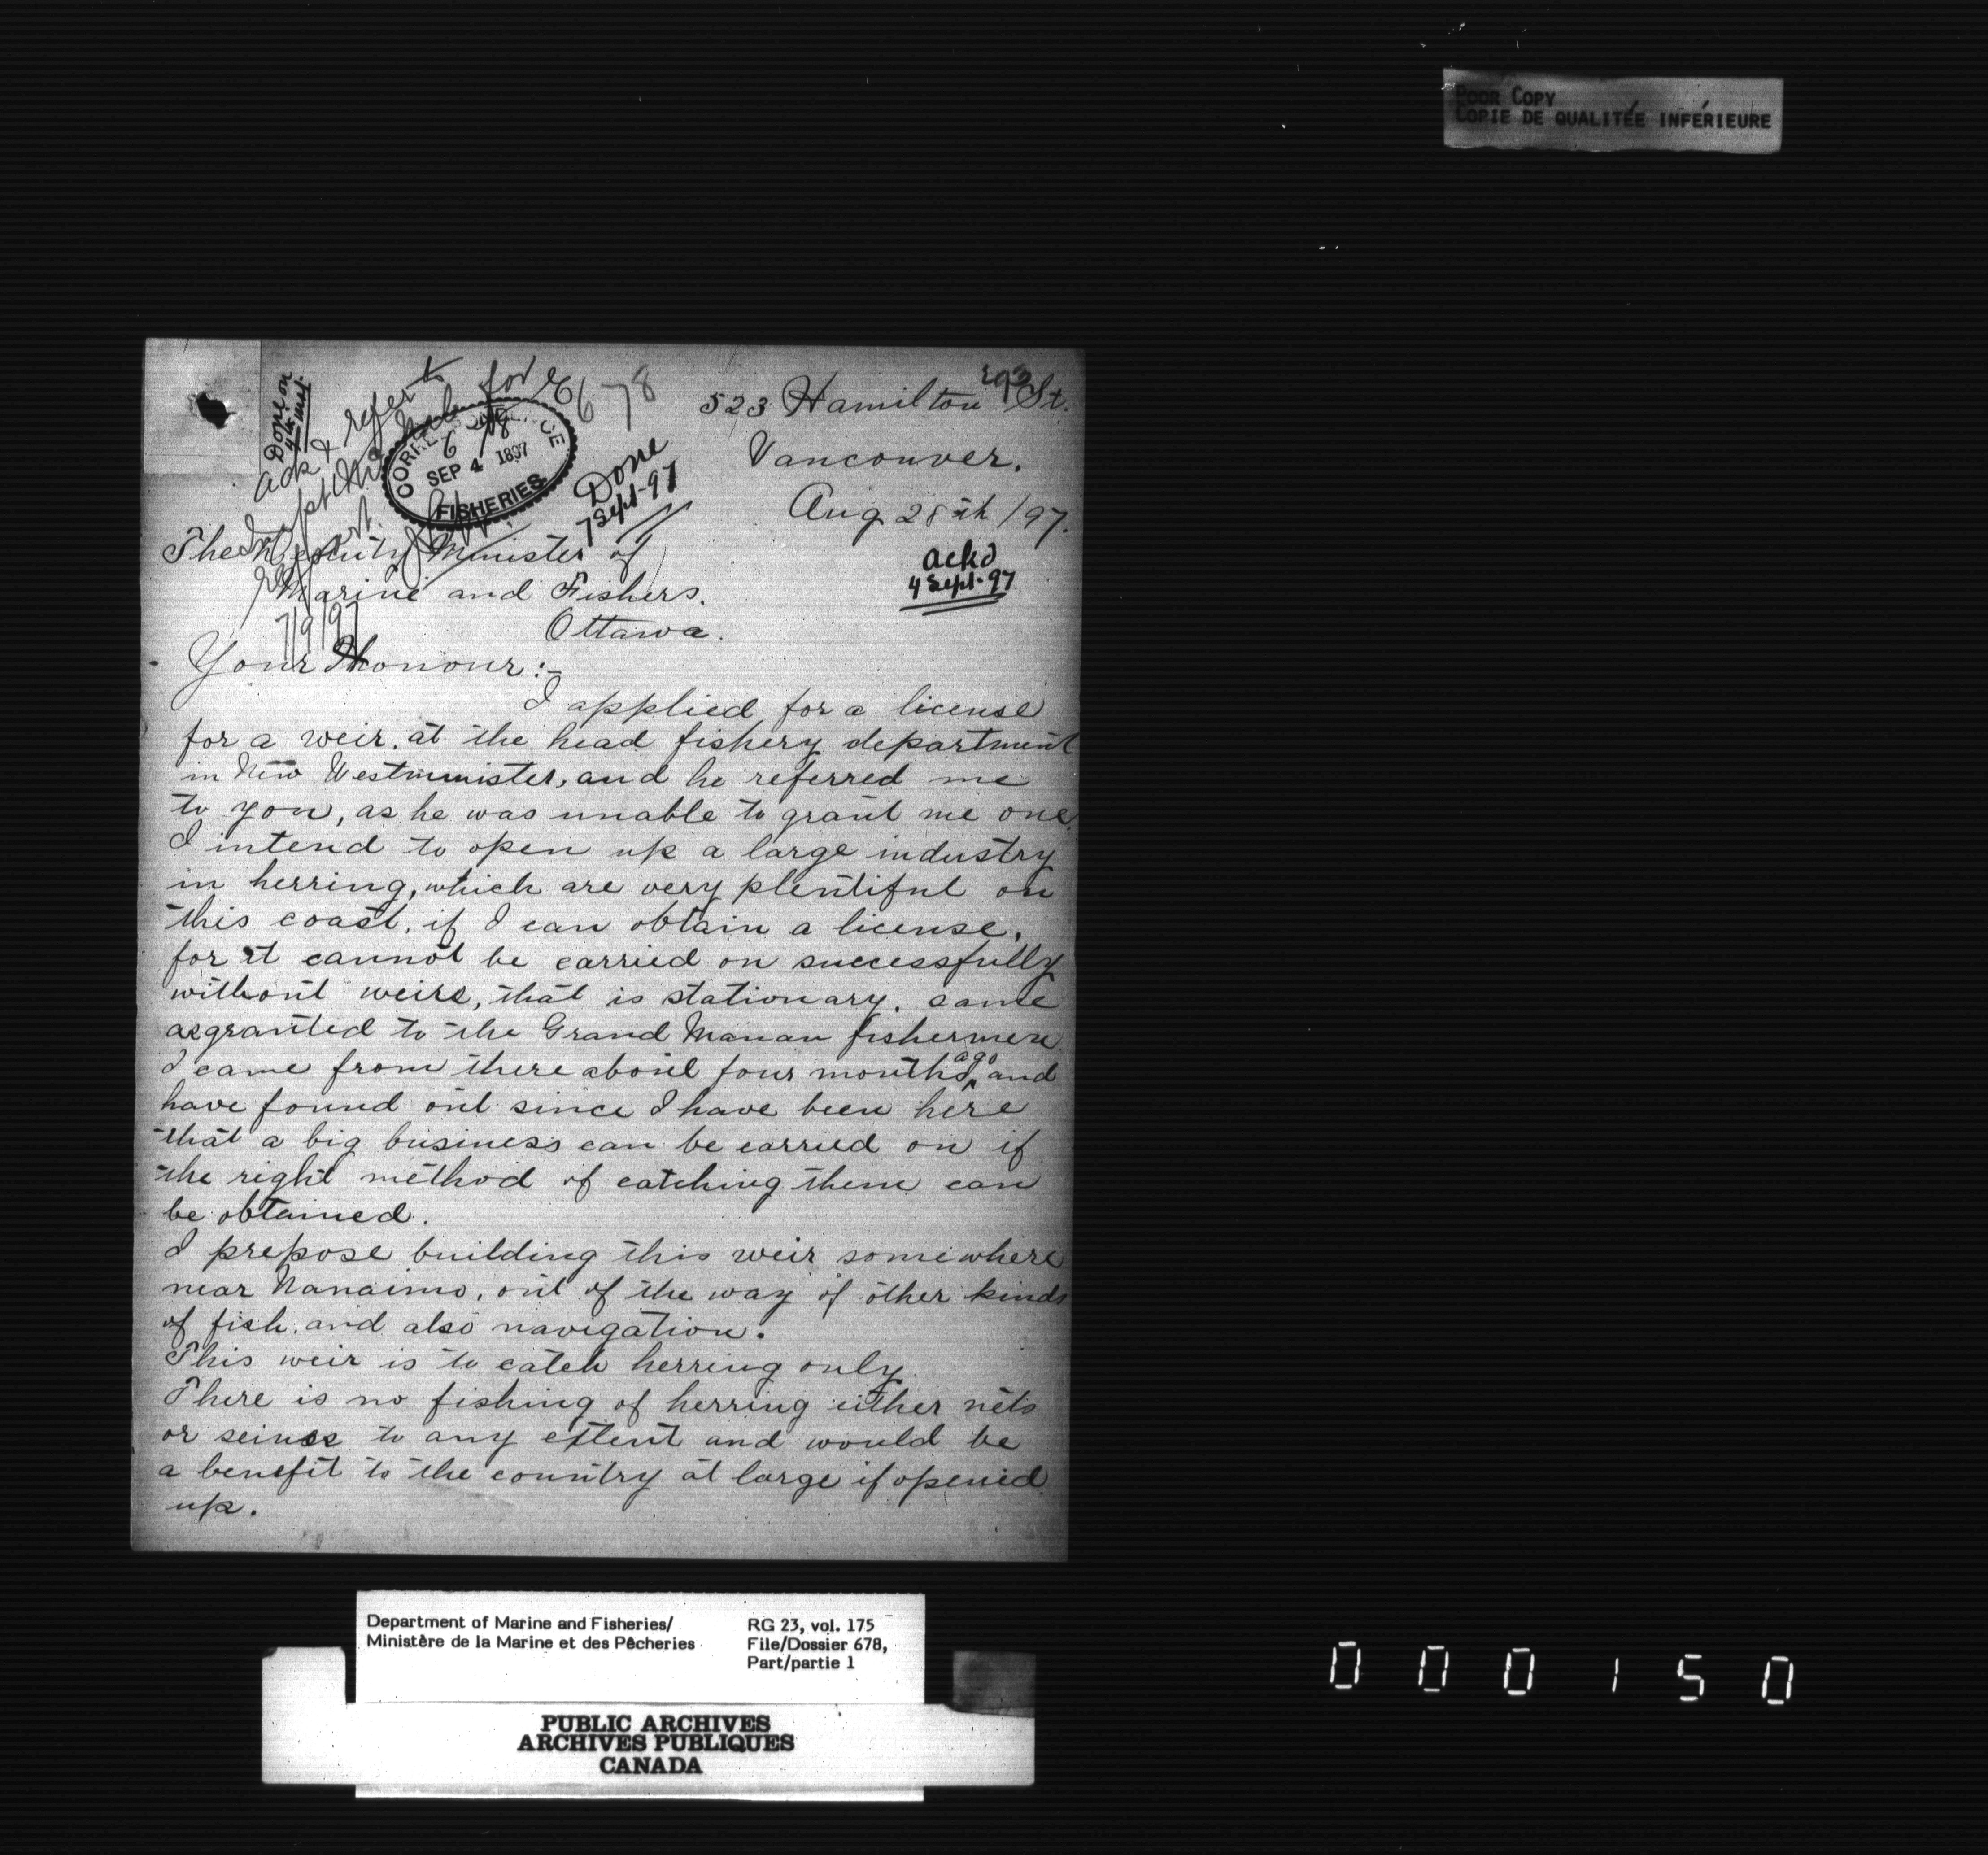 POOR COPY
COPIE DE QUALITÉE INFÉRIEURE
523 Hamilton St.
Vancouver.
Aug 28th /97.
678
Done on
4th inst.
ack & refer to
for
report.
7/9/97
CORRESPONDENCE
SEP 4 1897
FISHERIES
Done
7 Sept-97
ackd
4 Sept-97
The Deputy Minister of
Marine and Fishers.
Ottawa.
Your Honour:-
I applied for a license
for a weir. at the head fishery department
in New Westminister, and he referred me
to you, as he was unable to grant me one.
I intend to open up a large industry
in herring, which are very plentiful on
this coast. if I can obtain a license,
for it cannot be carried on successfully
without weirs, that is stationary. same
as granted to the Grand Manan fishermen.
I came from there about four months ago and
have found out since I have been here
that a big business can be carried on if
the right method of catching them can
be obtained.
I prepose building this weir somewhere
near Nanaimo, out of the way of other kinds
of fish. and also navigation.
This weir is to catch herring only.
There is no fishing of herring either nets
or seines to any extent and would be
a benefit to the country at large if opened
up.
Department of Marine and Fisheries/
Ministère de la Marine et des Pêcheries
RG 23, vol. 175
File/Dossier 678,
Part/partie 1
PUBLIC ARCHIVES
ARCHIVES PUBLIQUES
CANADA
000150